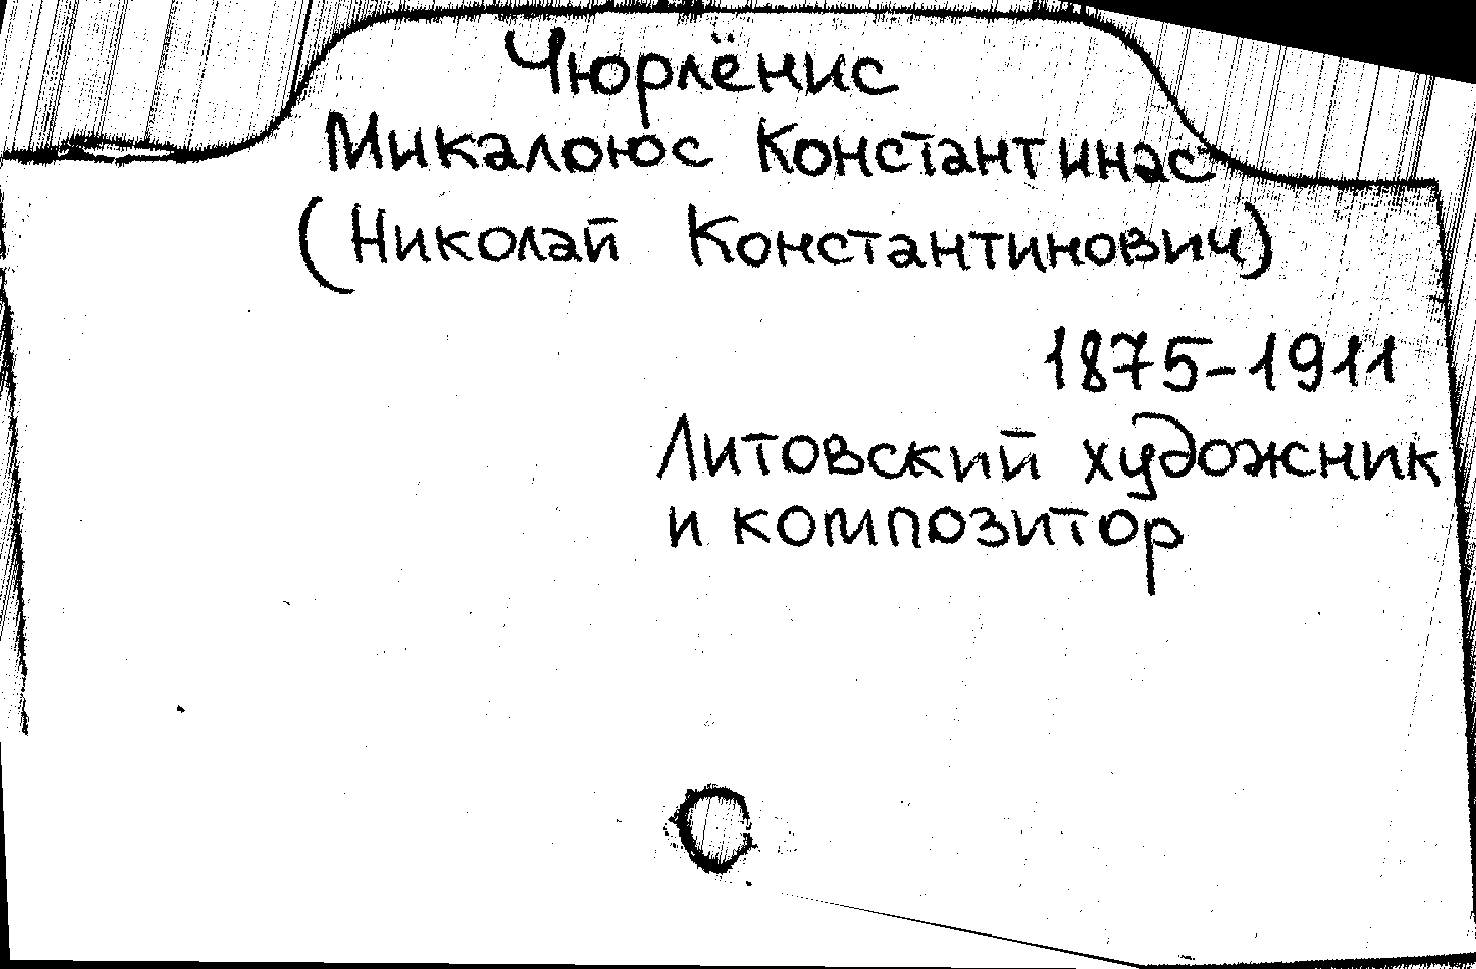 Чюрлёнис
Микалоюс Константинас
(Николай Константинович)
1875-1911
Литовский художник
и композитор